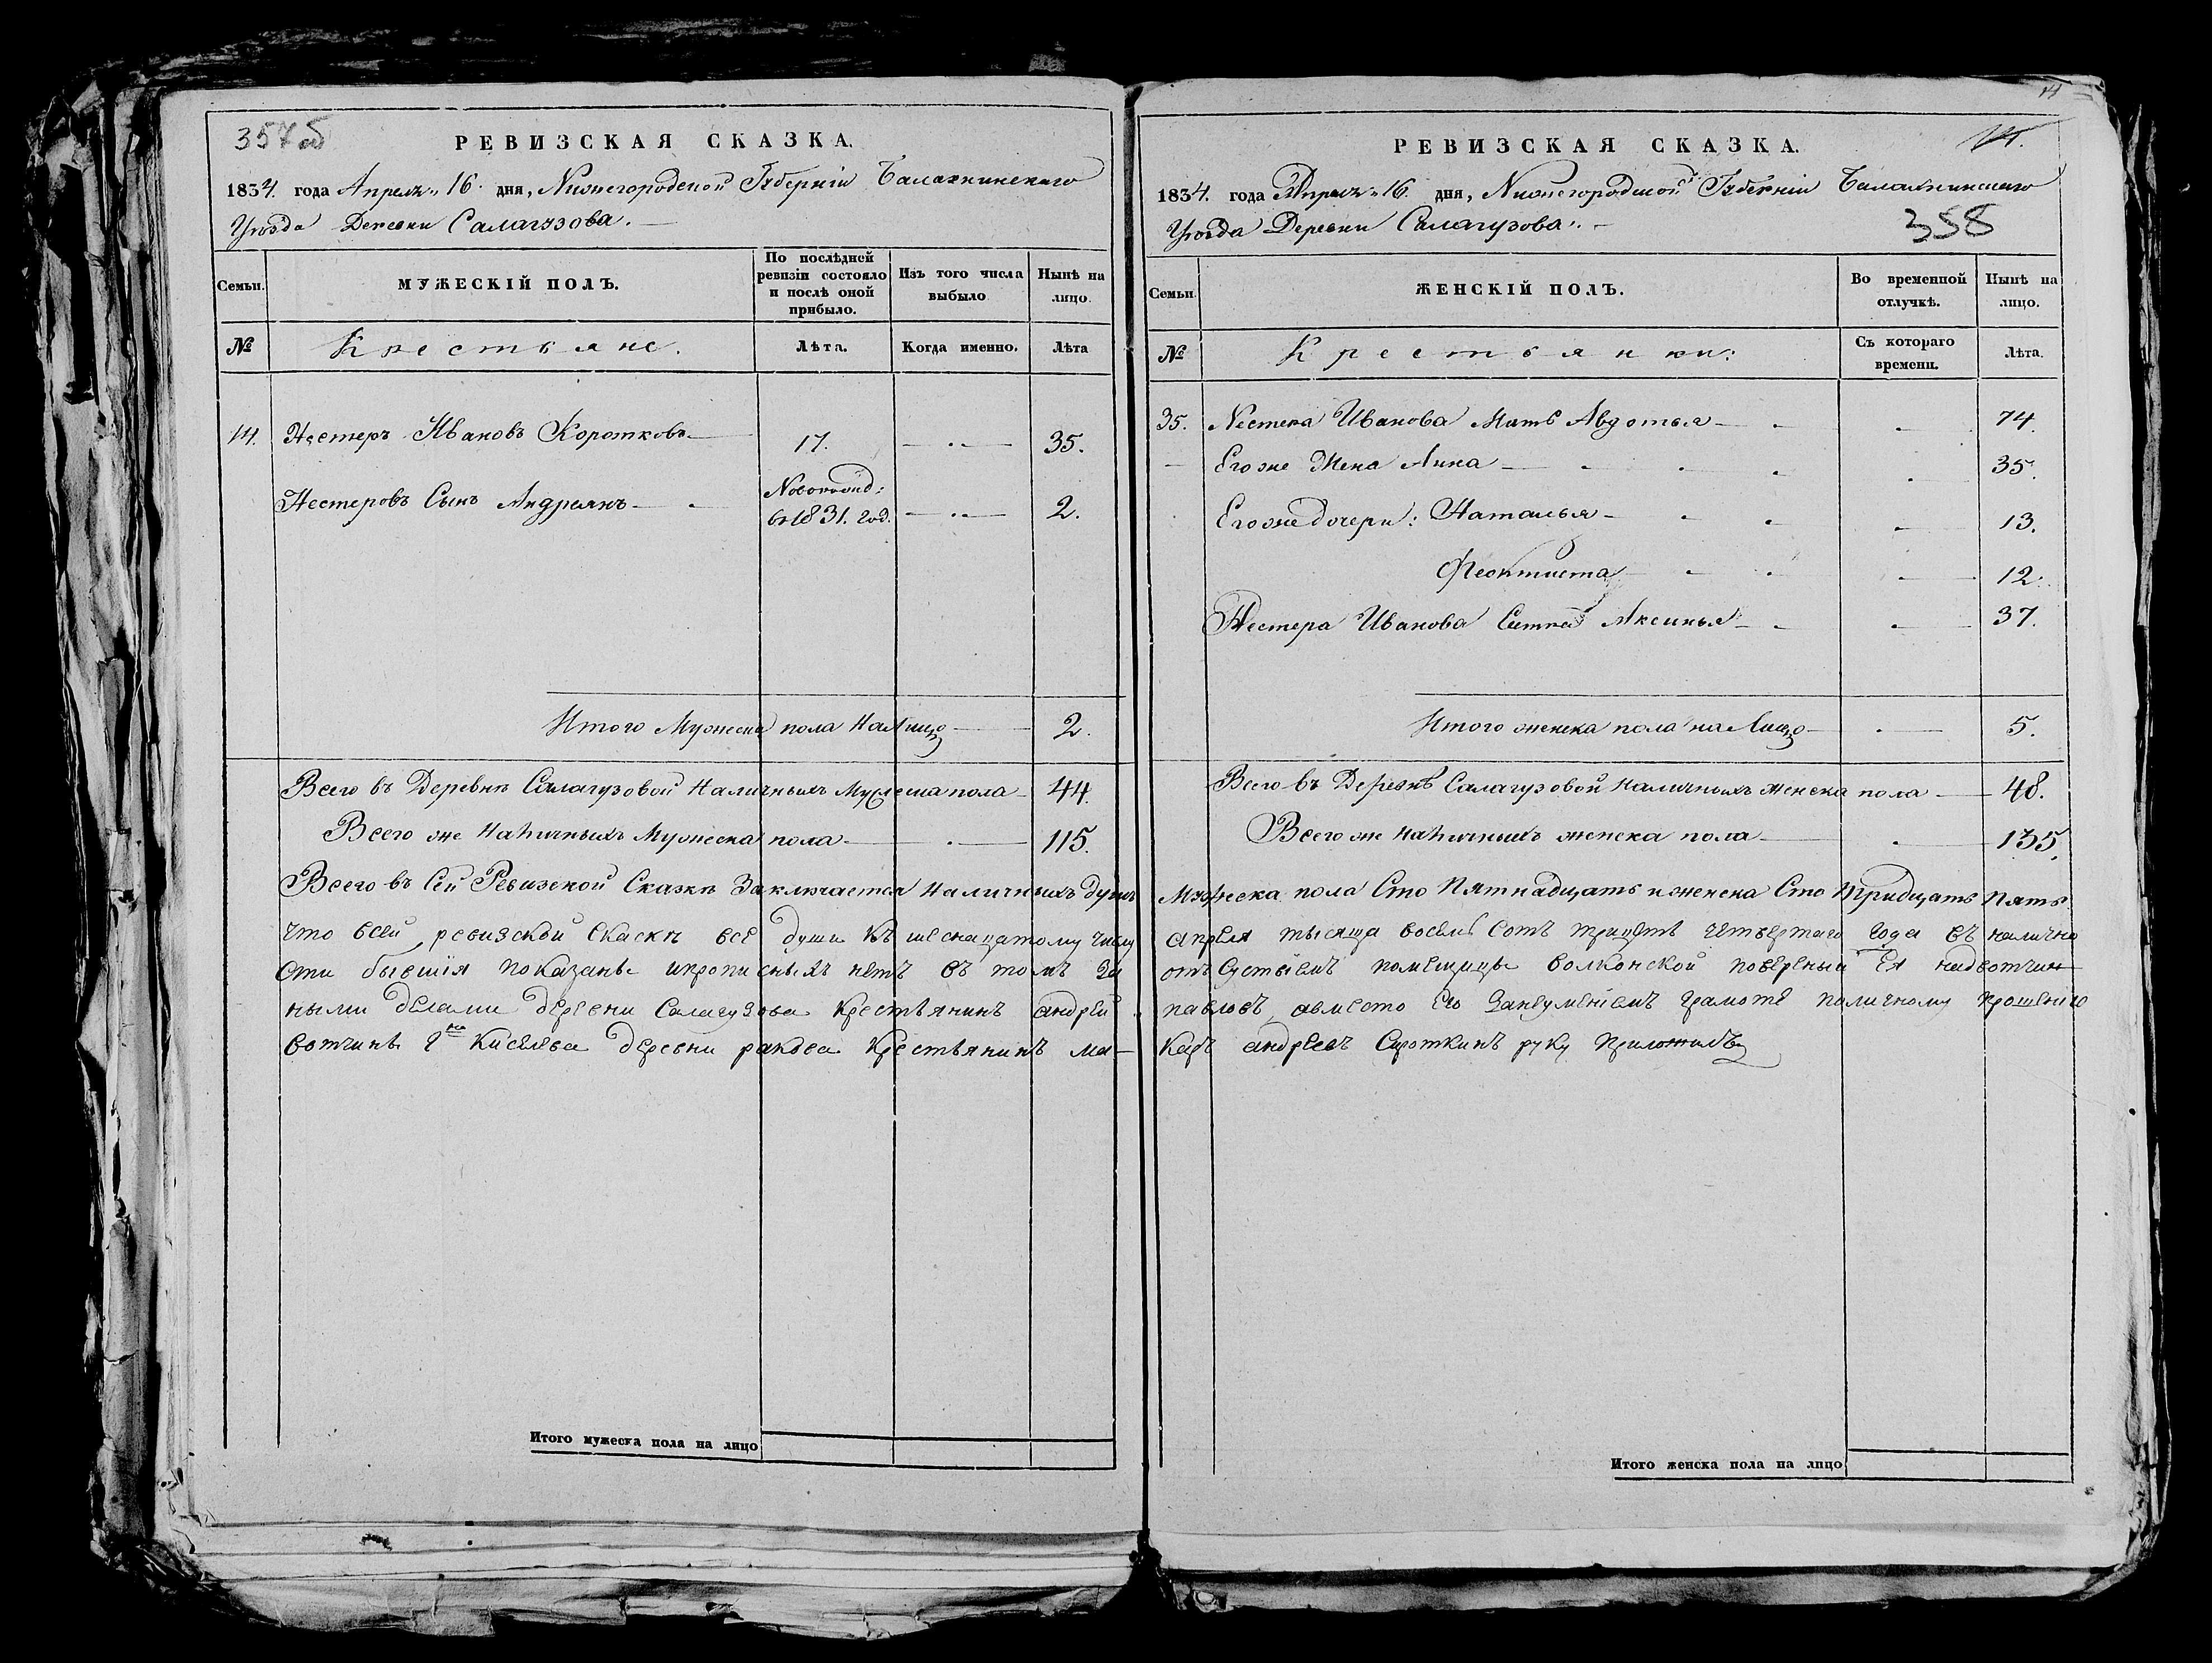 357об
РЕВИЗСКАЯ СКАЗКА.
1834. года Апреля 16. дня, Нижегородской Губерніи Балахнинскаго
Уезда Деревни Салагузова.
Семьи.
МУЖЕСКІЙ ПОЛЪ.
По послѣдней ревизіи состояло и послѣ оной прибыло.
Изъ того числа выбыло
Нынѣ на лицо.
№
Крестьяне.
Лѣта.
Когда именно.
Лѣта
14. Нестеръ Ивановъ Коротковъ 17. 35.
Нестеровъ Сынъ Андреянъ Новорожд: въ 1831. год. 2.
Итого Мужеска пола На Лицо 2.
Всего въ Деревни Салагузовой Наличныхъ Мужеска пола 44.
Всего же Наличныхъ Мужеска пола 115.
Всего въ Сей Ревизской Сказки Заключается Наличныхъ душъ
что всей ревизской скаски все души къ шеснацатому числу
сти бывшія показаны ипрописныхъ нетъ въ томъ за
ными делами деревни Салагузова крестьянинъ андрей
вотчины Гна Киселева деревни ракова крестьянинъ ма-
Итого мужеска пола на лицо
14
14.
РЕВИЗСКАЯ СКАЗКА.
1834. года Апреля 16. дня, Нижегородской Губерніи Балахнинскаго
Уезда Деревни Салагузова.
358
Семьи.
ЖЕНСКІЙ ПОЛЪ.
Во временной отлучкѣ.
Нынѣ на лицо.
№
Крестьянки:
Съ котораго времени.
Лѣта.
35. Нестера Иванова Мать Авдотья 74.
Его же Жена Анна 35.
Его же дочери: Наталья 13.
Феоктиста 12.
Нестера Иванова Сестра Аксинья 37.
Итого женска пола на Лицо 5.
Всего въ Деревнѣ Салагузовой Наличныхъ женска пола 48.
Всего же Наличныхъ женска пола 135.
Мужеска пола Сто Пятнадцать и женска Сто Тридцать Пять.
апреля тысяща восемь сотъ трицеть четвертаго года въ налично
отъсуствіемъ помещицы волконской поверены ея надвотчин
павловъ, авместо его занеуменіемъ грамоте поличному прошенію
каръ андреевъ Сироткинъ руку приложилъ
Итого женска пола на лицо